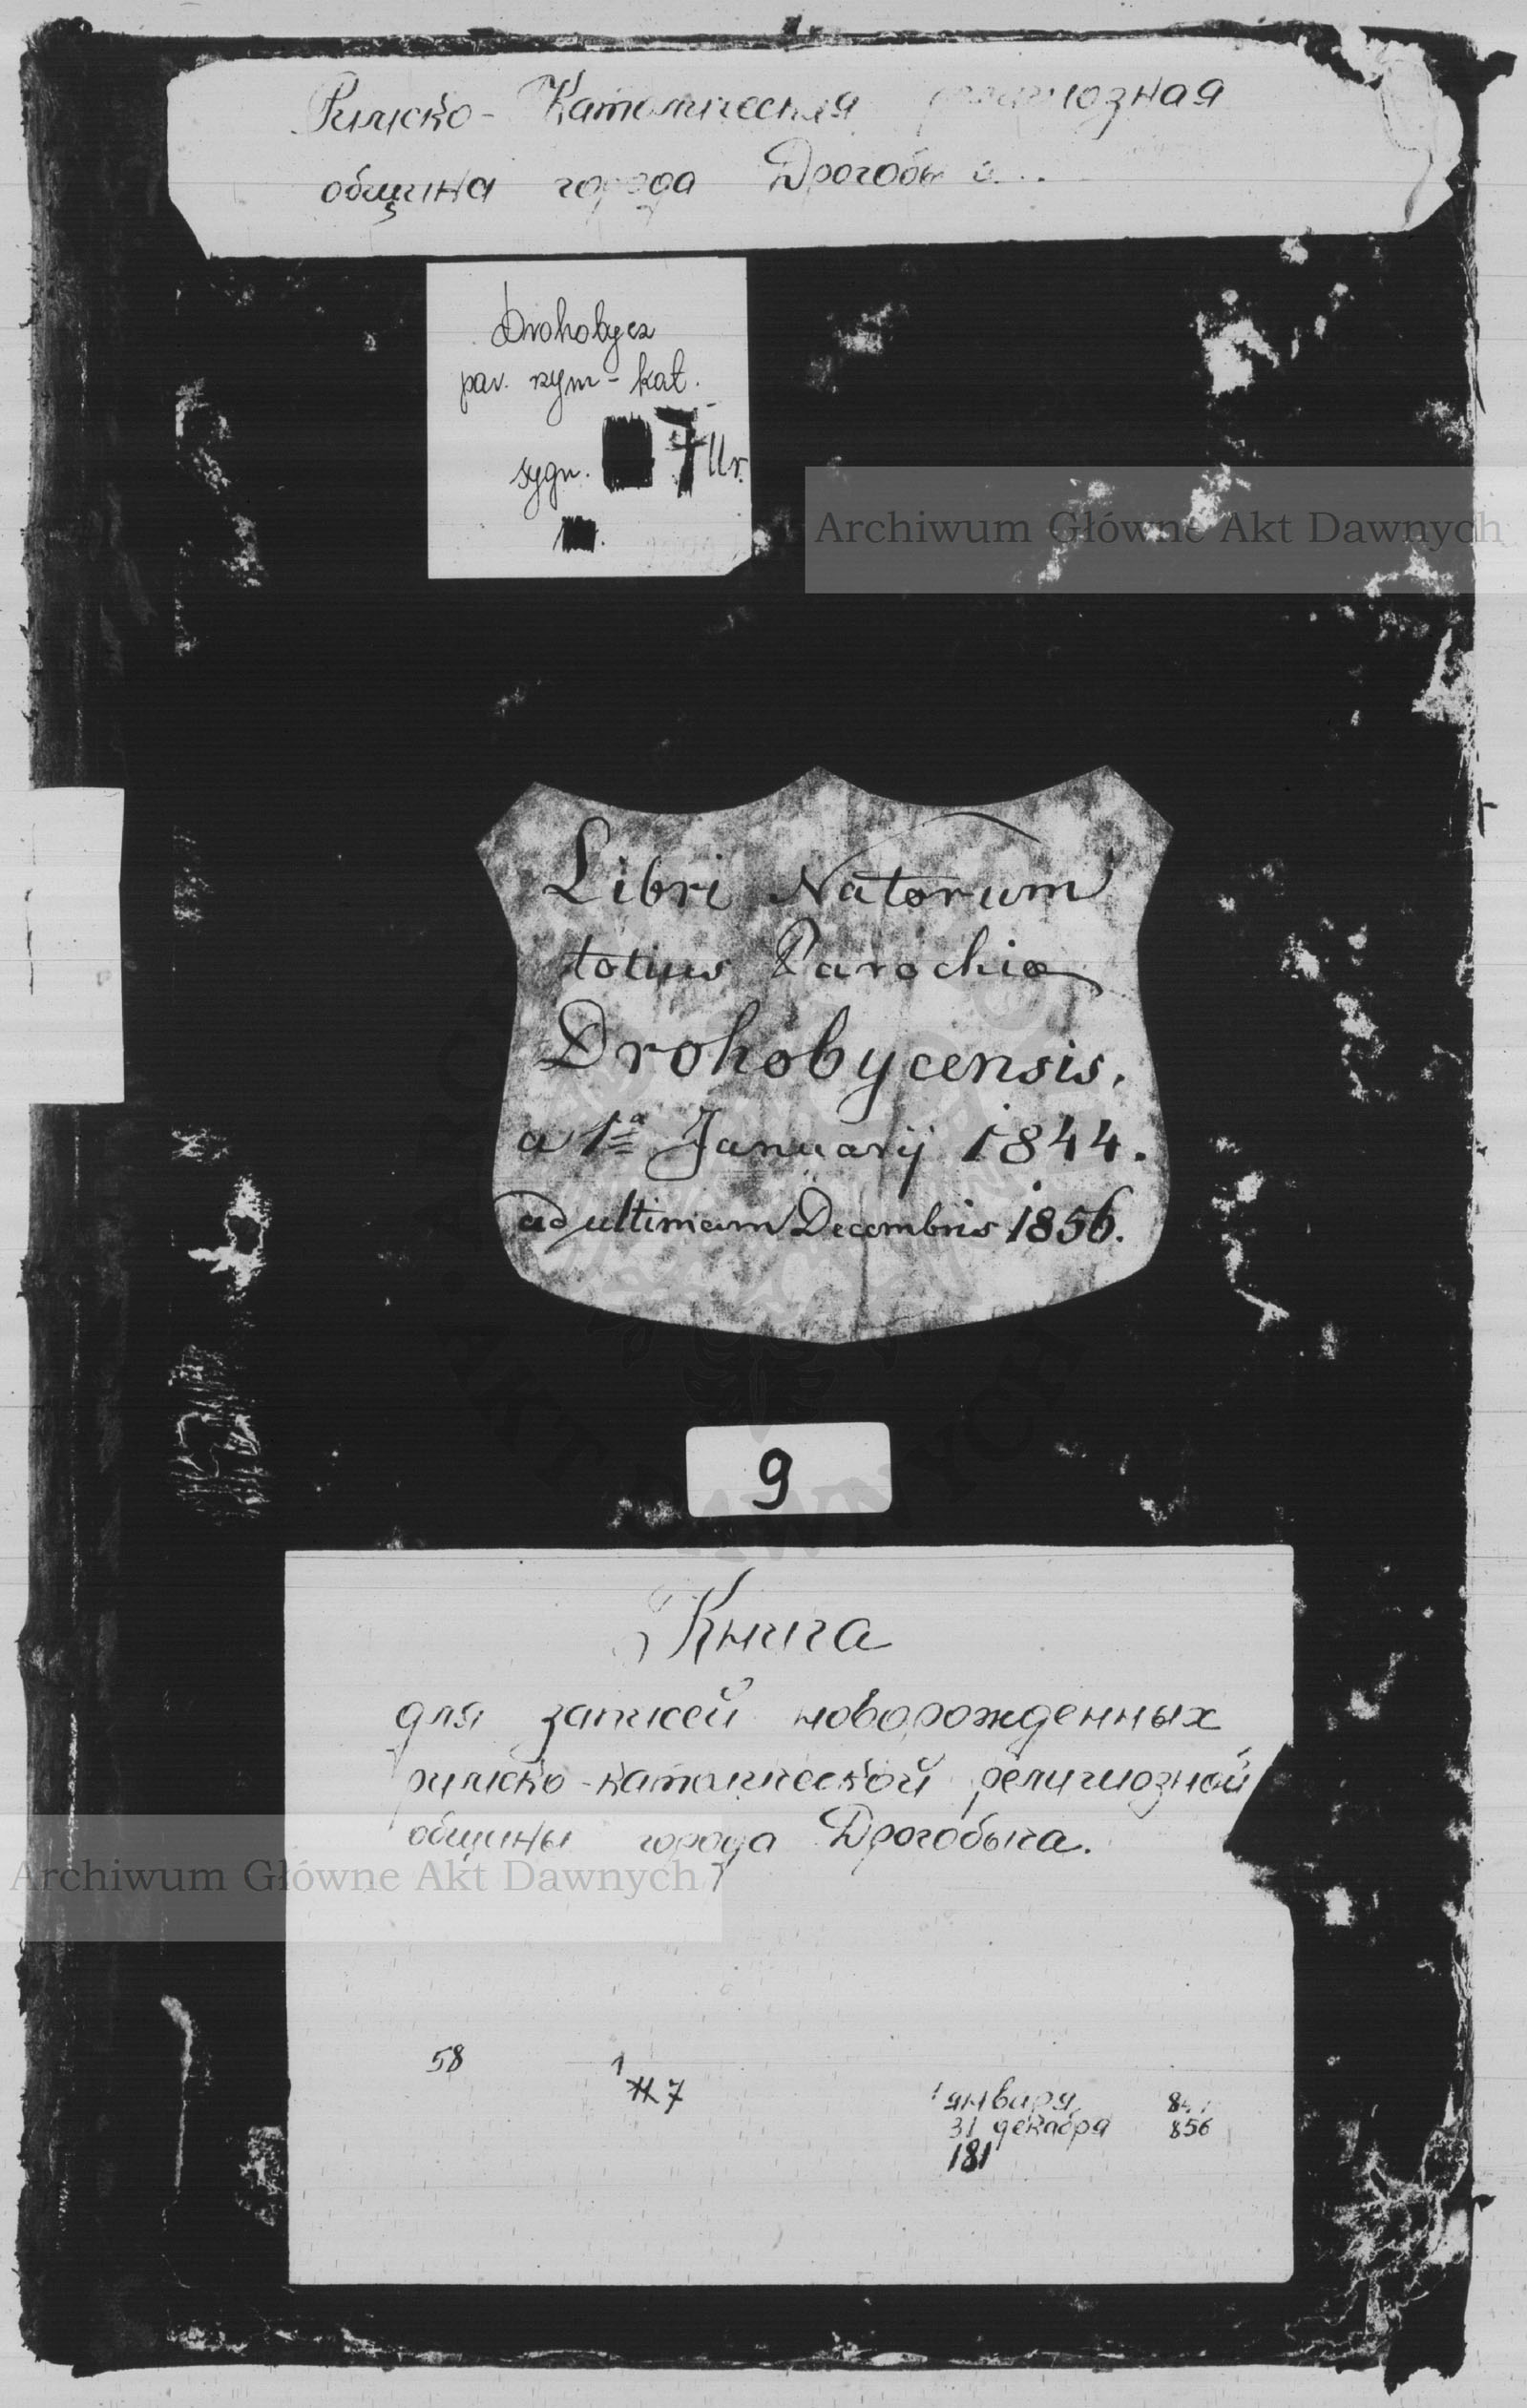 Римско-Католическая религиозная
община города
Drohobycz
par. rzym-kat.
sygn. 7 Ur.
Archiwum Główne Akt Dawnych
Libri Natorum
totius Parochiæ
Drohobycensis.
a 1ª Januarij 1844.
ad ultimam Decembris 1856.
9
Книга
для записей новорожденных
римско-католической религиозной
общины города Дрогобыча.
Archiwum Główne Akt Dawnych
58
7
1 января
31 декабря 856
181